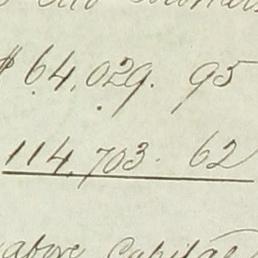 $64,029. 95
114,703. 62
above Capital